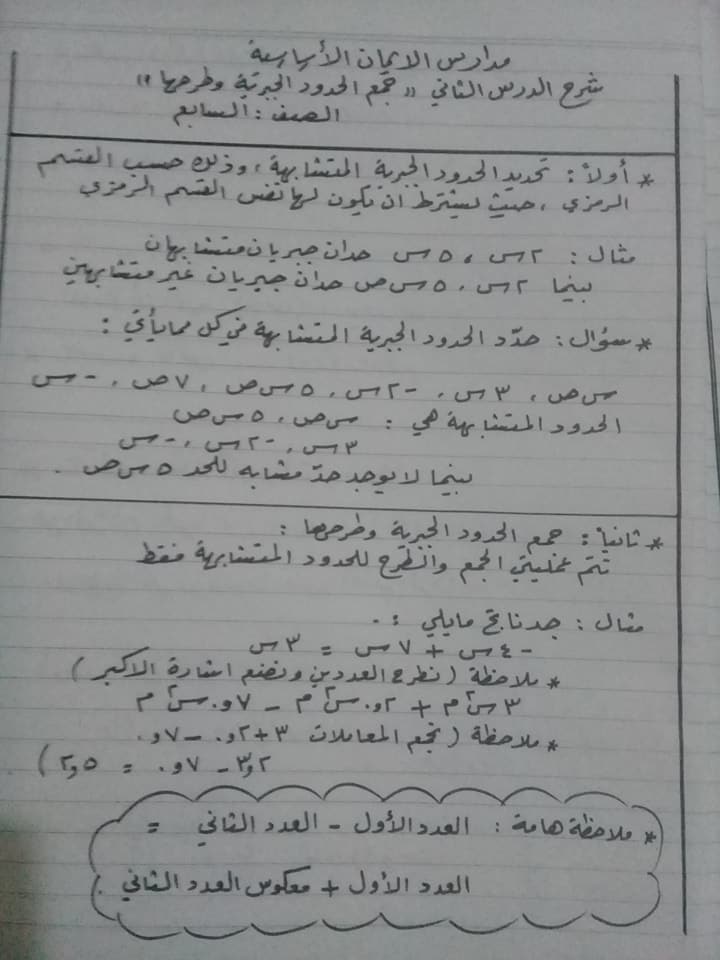 مدارس الايمان الأساسية
شرح الدرس الثاني "جمع الحدود الجبرية وطرحها"
الصف: السابع
* أولاً: تحديد الحدود الجبرية المتشابهة، وذلك حسب القسم
الرمزي، حيث يشترط ان يكون لها نفس القسم الرمزي
مثال: ٢س، ٥س حدان جبريان متشابهان
بينما ٢س، ٥س ص حدان جبريان غير متشابهين
* سؤال: حدّد الحدود الجبرية المتشابهة في كل مما يأتي:
س ص، ٣س، -٢س، ٥س ص، ٧ص، -س
الحدود المتشابهة هي: س ص، ٥س ص
٣س، -٢س، -س
بينما لا يوجد حدّ مشابه للحد ٥س ص.
* ثانياً: جمع الحدود الجبرية وطرحها:
تتم عمليتي الجمع والطرح للحدود المتشابهة فقط
مثال: جد ناتج مايلي:.
-٤س + ٧س = ٣س
* ملاحظة (نطرح العددين ونضع اشارة الاكبر)
٣س٢م + ٢و.س٢م - ٧و.س٢م
* ملاحظة (نجمع المعاملات ٣+٢و. - ٧و.
٣و٢ - ٧و. = ٢و٥)
* ملاحظة هامة: العدد الأول - العدد الثاني =
العدد الأول + معكوس العدد الثاني.